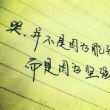 哭，并不是因为脆弱
而是因为坚强